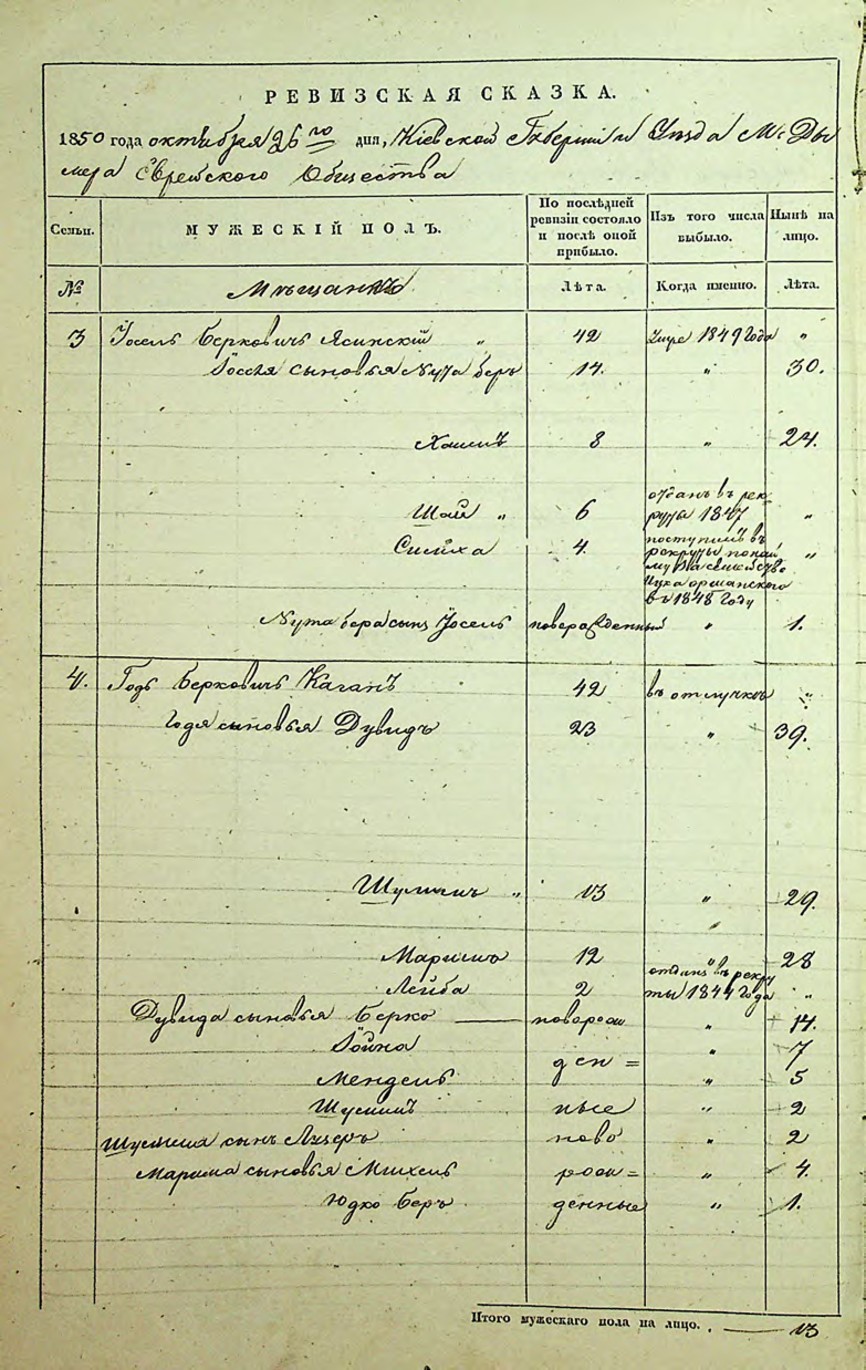 РЕВИЗСКАЯ СКАЗКА.
1850 года октября 26го дня, Кіевской Губерніи и Уезда М. Ды
мера Еврейского Общества
Семьи. МУЖЕСКІЙ ПОЛЪ. По послѣдней ревизіи состояло и послѣ оной прибыло. Изъ того числа выбыло. Нынѣ на лицо.
№ Мещанъ Лѣта. Когда именно. Лѣта.
3 Іосель Берковичъ Ясинскій " 42 умре 1849 года "
Іоселя сыновья Нута беръ 14. " 30.
Хаимъ 8 " 24.
Шай " 6 отданъ в рек
рута 1847 "
4. поступилъ въ
рекруты "
въ 1848 году
Нута бера сынъ Іосель новорожденный " 1.
4. Годъ Берковичъ Каганъ 42 въ отлучке "
Годя сыновья Дувидъ 23 " 39.
Шулимъ " 13 " 29.
12 " 28
Лейба 2 отданъ въ рекру
ты 1844 года "
Дувида сыновья Берко — новорож " 14.
Іойна " 7
ден =
Мендель " 5
ные " 2
сынъ Лизеръ ново " 2
сыновья Михель рож= " 4.
Юдко Беръ денные " 1.
Итого мужескаго пола на лицо. — 13